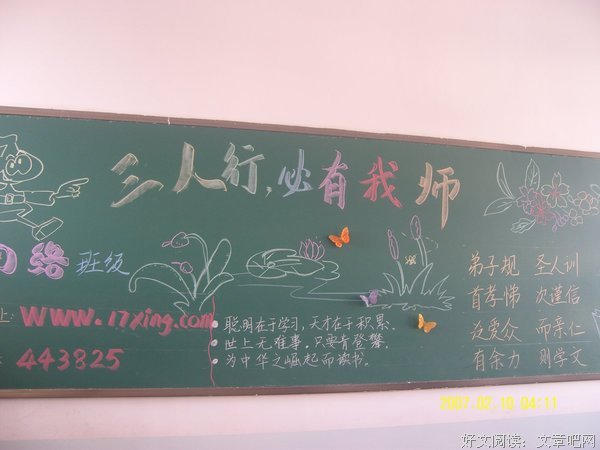 三人行，必有我师
网络班级
www.17xing.com
443825
聪明在于学习，天才在于积累。
世上无难事，只要肯登攀。
为中华之崛起而读书。
弟子规 圣人训
首孝悌 次谨信
泛爱众 而亲仁
有余力 则学文
2007.02.10 04:11
好文阅读：文章吧网